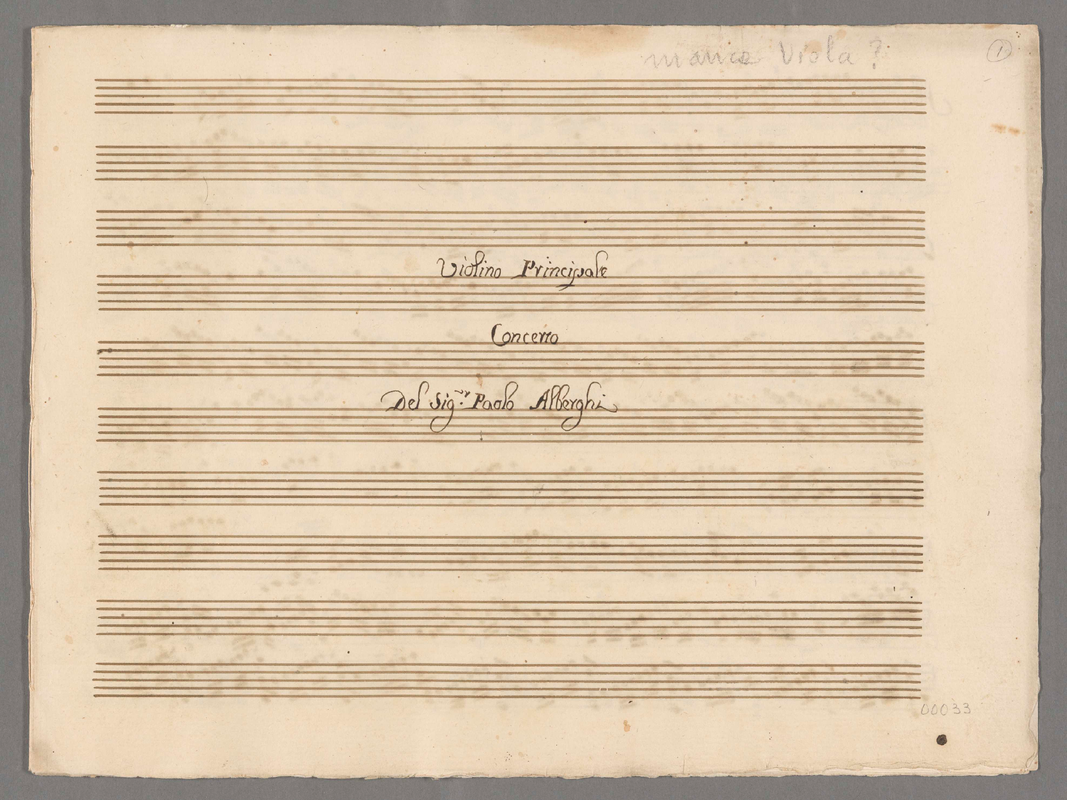 manca Viola?
1
Violino Principale
Concerto
Del Sig.r Paolo Alberghi
00033